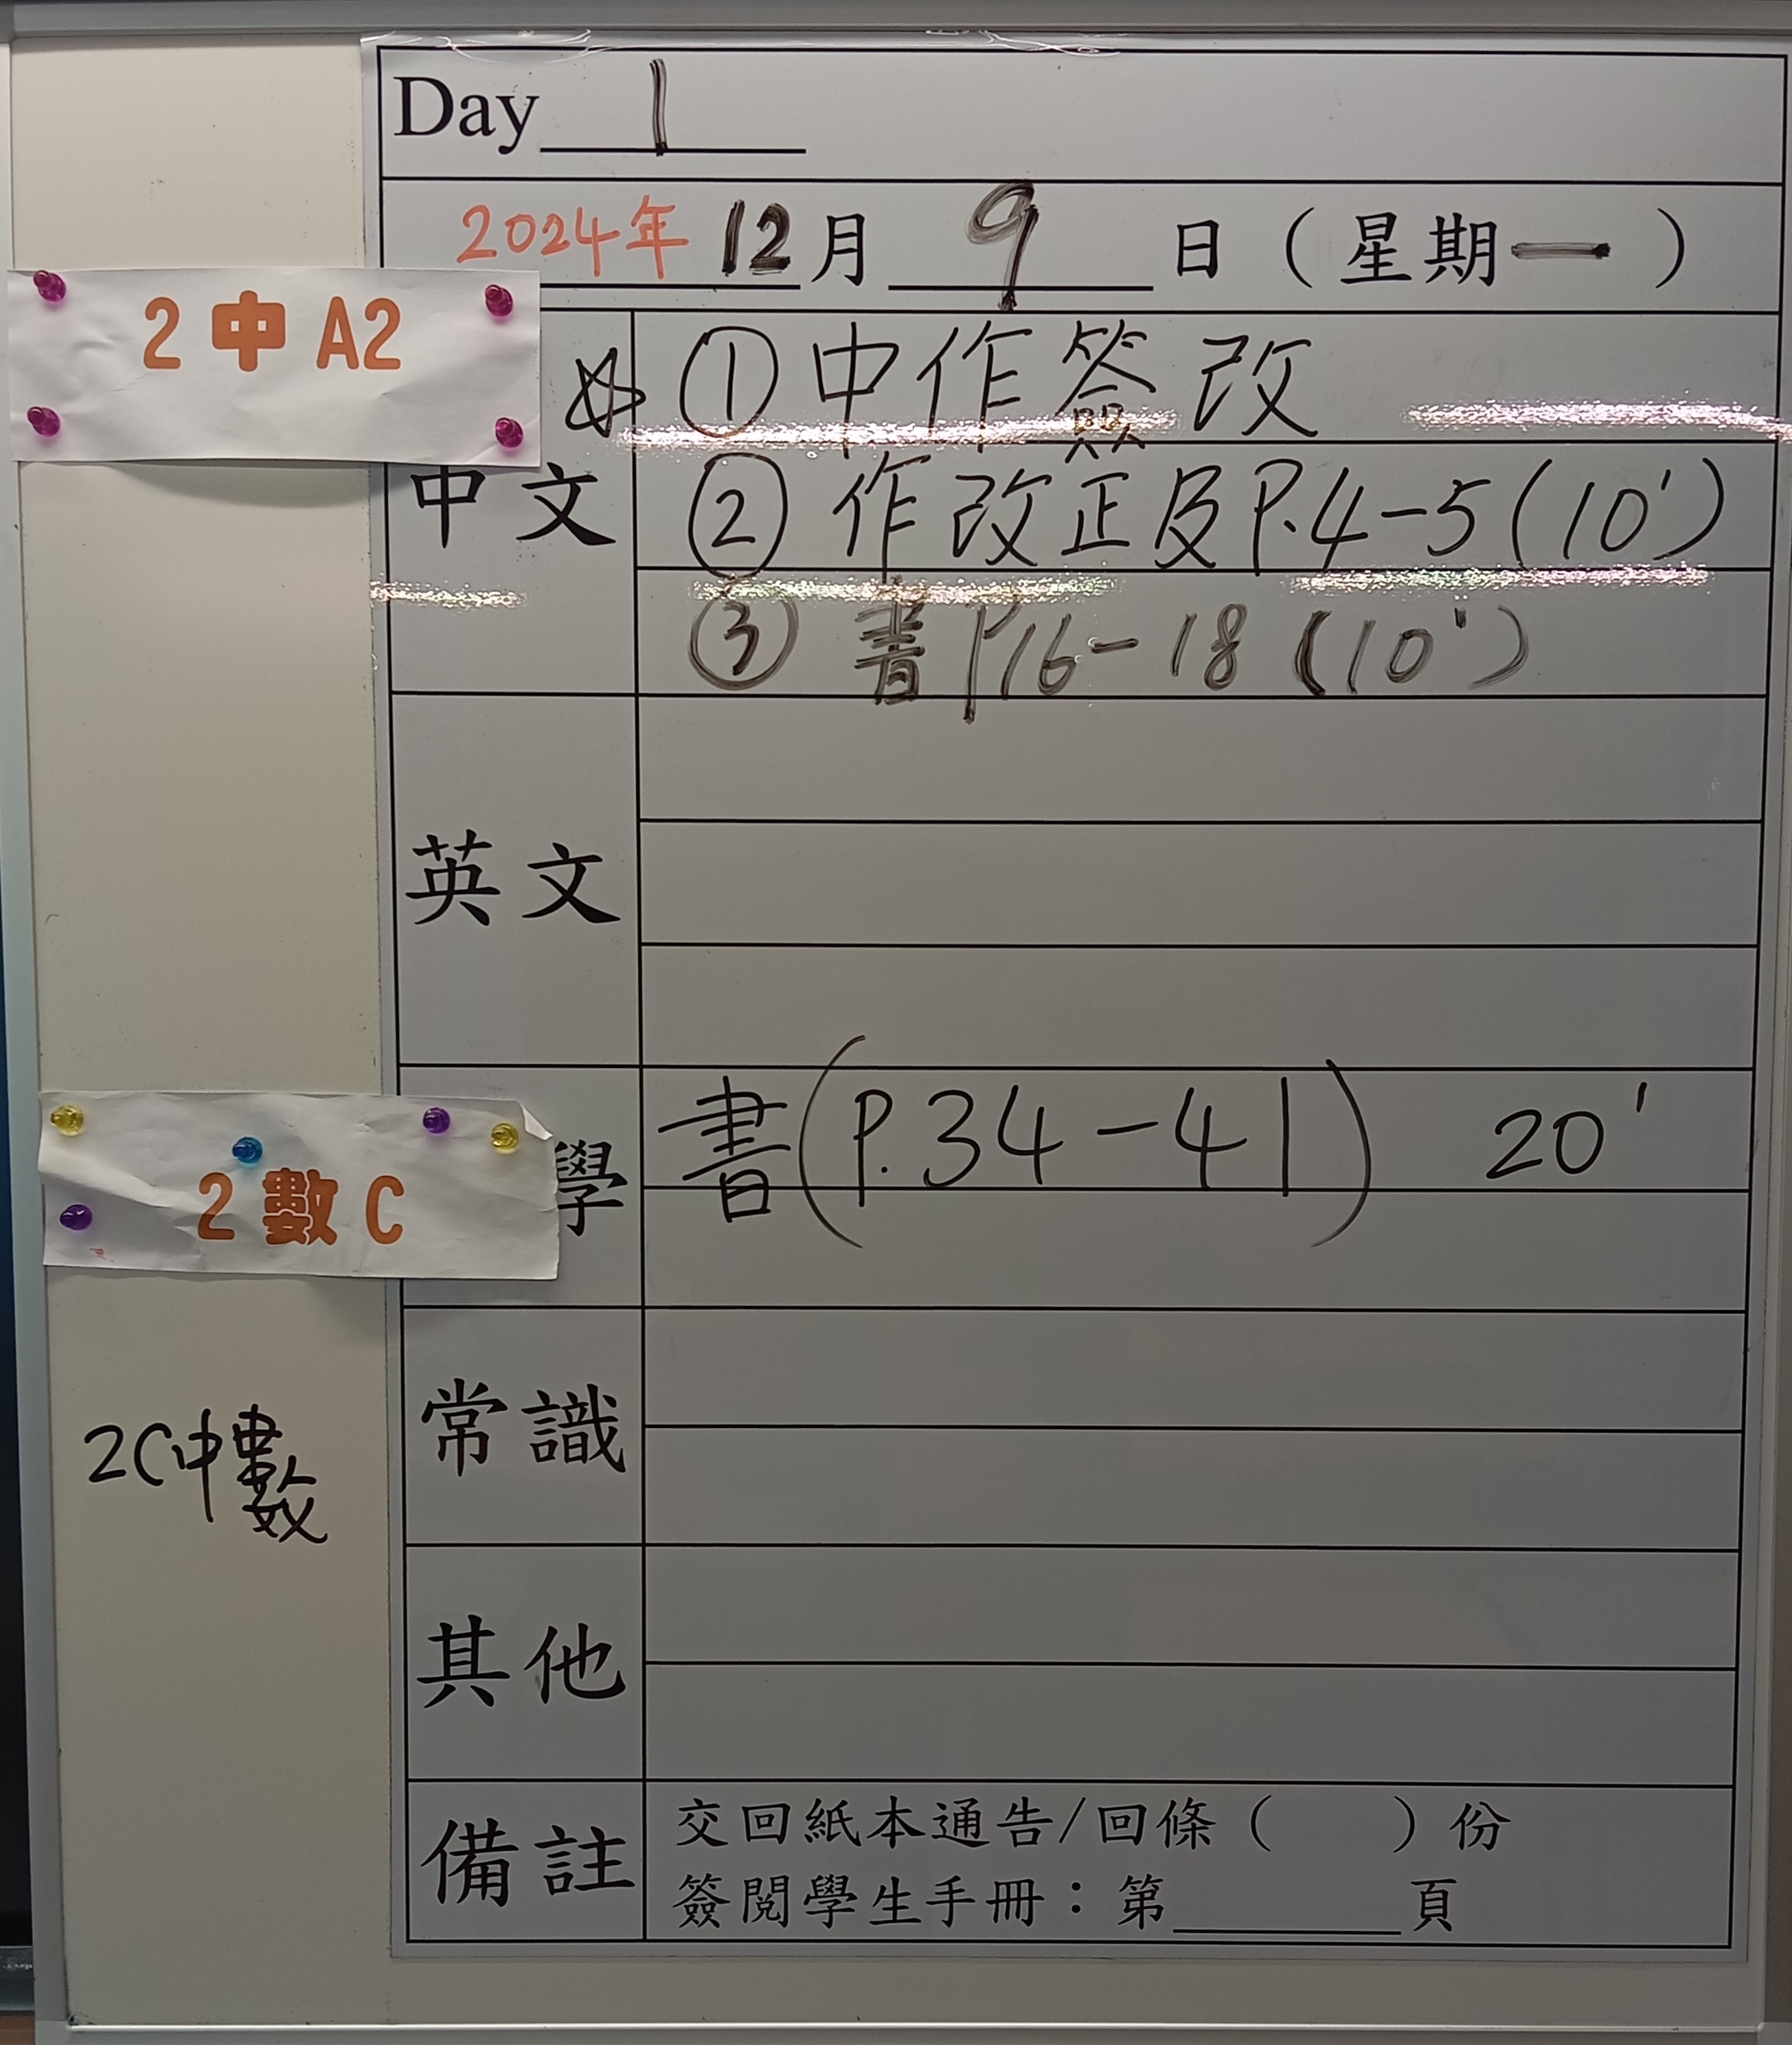 Day 1
2024年 12月 9 日（星期一）
2 中 A2
☆ ① 中作簽改
中文
② 作改正及P.4-5(10')
③ 書P16-18(10')
英文
2 數 C
學
書(P.34-41) 20'
常識
2C中數
其他
備註
交回紙本通告/回條（ ）份
簽閱學生手冊：第 頁